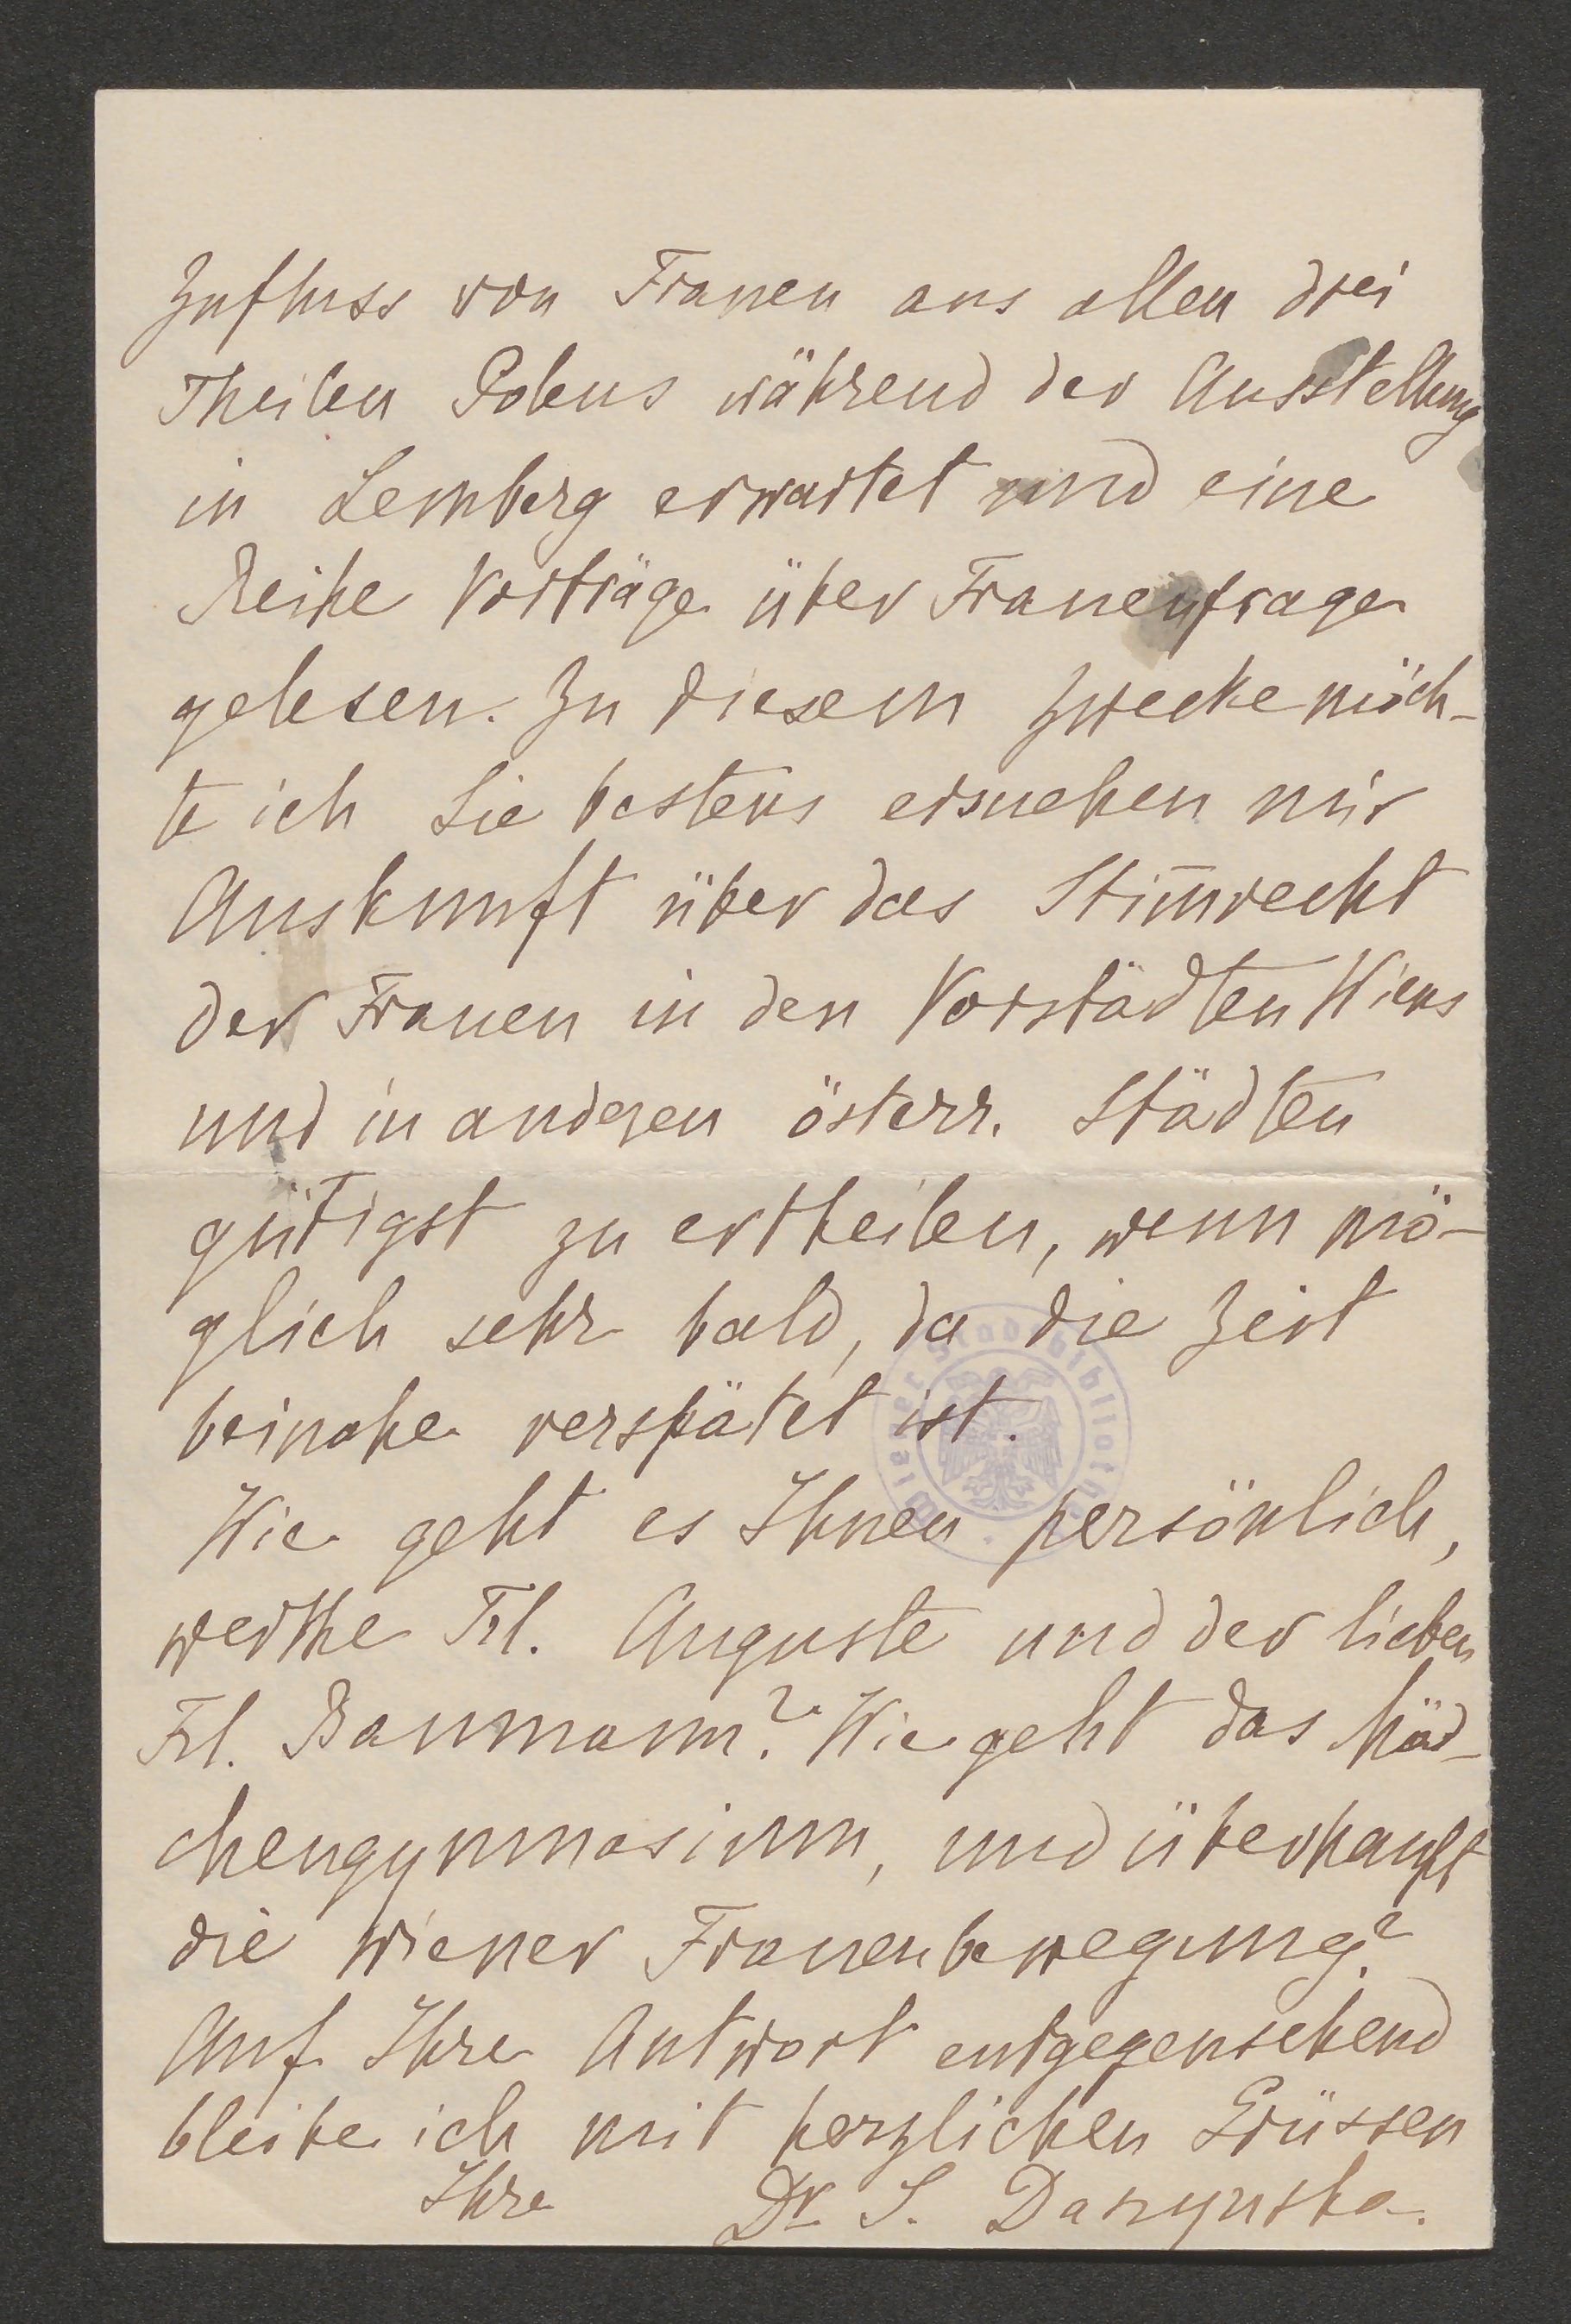 Zufluss von Frauen aus allen drei
Theilen Polens während der Ausstellung
in Lemberg erwartet und eine
Reihe Vorträge über Frauenfrage
gelesen. Zu diesem Zwecke möch-
te ich Sie bestens ersuchen mir
Auskunft über das Stim̄recht
der Frauen in den Vorstädten Wiens
und in anderen österr. Städten
gütigst zu ertheilen, wenn mö-
glich sehr bald, da die Zeit
beinahe verspätet ist.
Wie geht es Ihnen persönlich,
werthe Frl. Auguste und der lieben
Frl. Baumann? Wie geht das Mäd-
chengymnasium, und überhaupt
die Wiener Frauenbewegung?
Auf Ihre Antwort entgegensehend
bleibe ich mit herzlichen Grüssen
Ihre Dr. S. Daszynska.
Wiener Stadtbibliothek